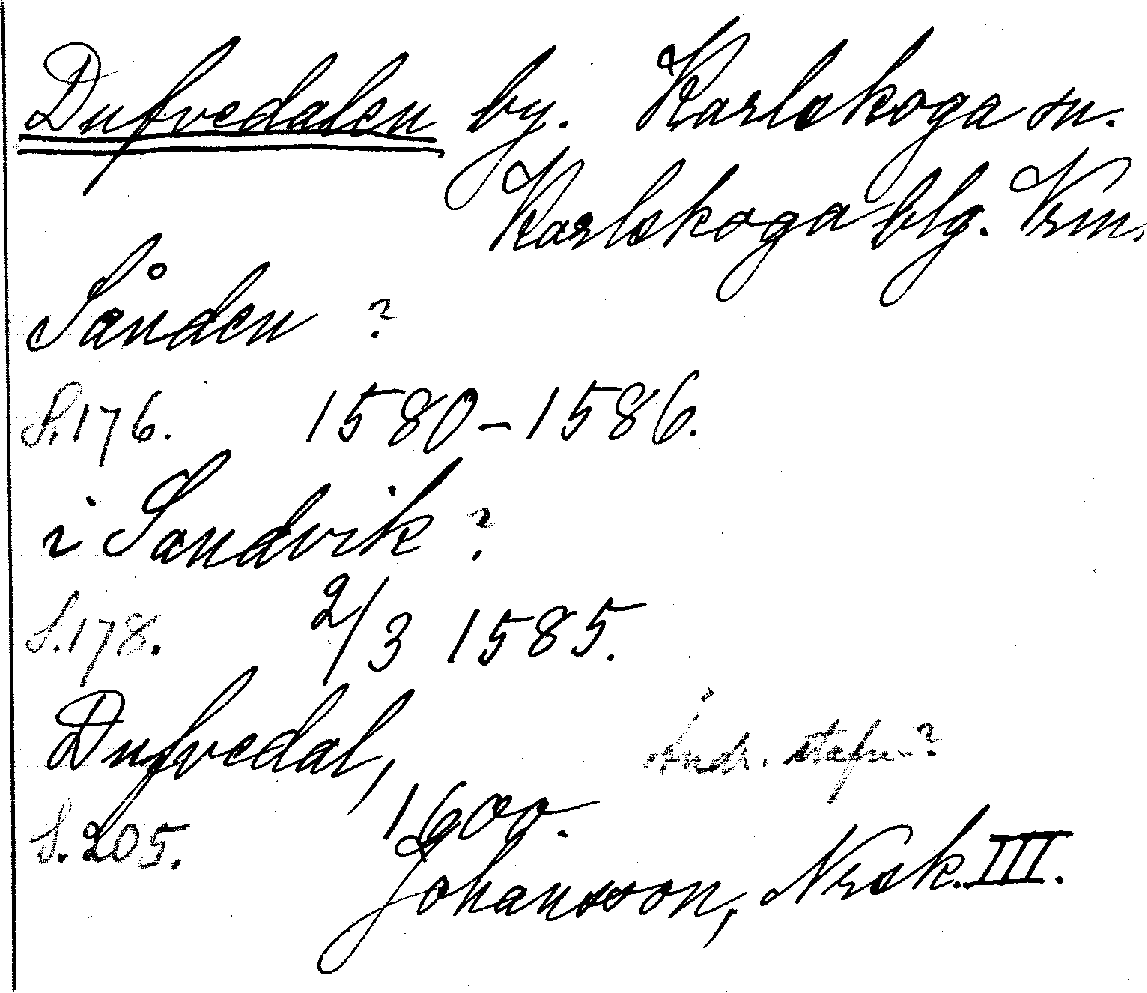 Dufvedalen by. Karlskoga sn.
Karlskoga blg. Vrm.
Sånden ?
S. 176. 1580–1586.
i Sandvik ?
S. 178. 2/3 1585.
Dufvedal,
Andr. stafn.?
S. 205. 1600.
Johansson, Nrsk. III.